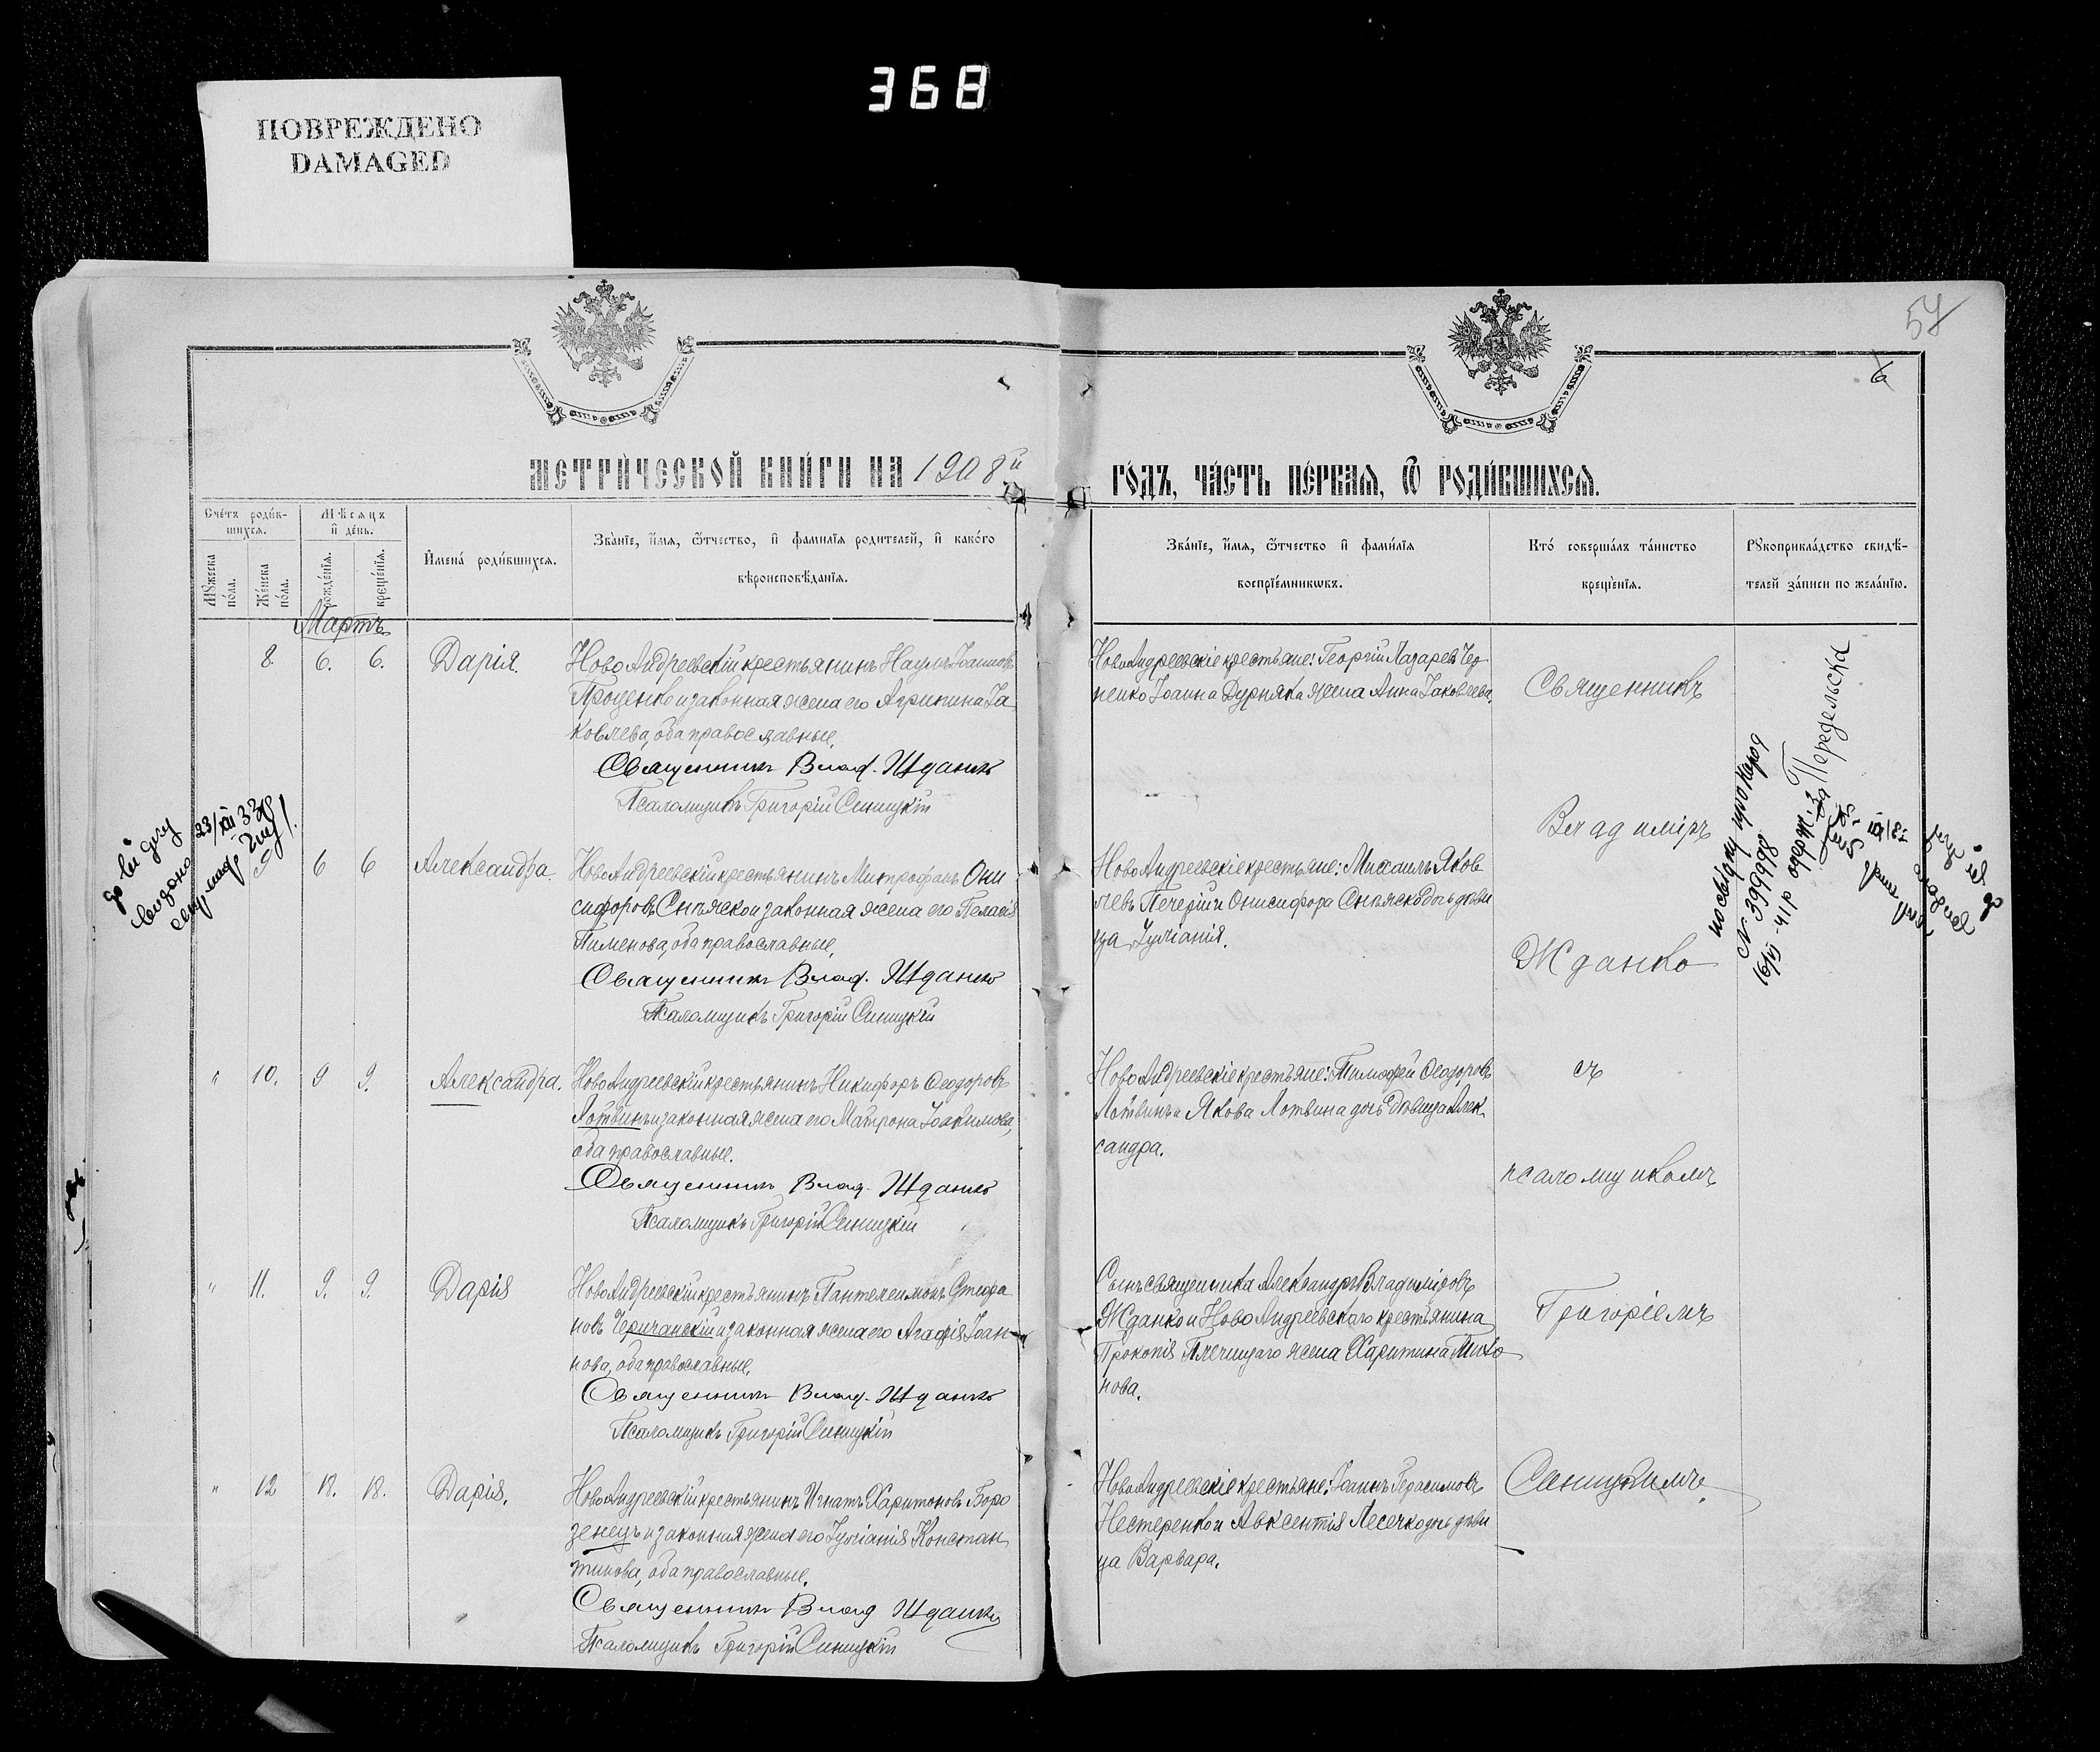 368
ПОВРЕЖДЕНО
DAMAGED
57
6
МЕТРИ́ЧЕСКОЙ КНИ́ГИ НА 1908й
ГО́ДЪ, ЧА́СТЬ ПЕ́РВАѦ, Ѿ РОДИ́ВШИХСѦ.
Сче́тъ роди́в-
шихсѧ.
Мꙋжеска по́ла.
Же́нска по́ла.
Мѣ́сѧцъ
и҆ де́нь.
рожде́нїѧ.
креще́нїѧ.
И҆мена̀ роди́вшихсѧ.
Зва́нїе, и҆́мѧ, ѻ҆́тчество, и҆ фами́лїѧ роди́телей, и҆ како́го
вѣроисповѣ́данїѧ.
Зва́нїе, и҆́мѧ, ѻ҆́тчество и҆ фами́лїѧ
воспрїе́мникѡвъ.
Кто́ соверша́лъ та́инство
креще́нїѧ.
Рꙋкоприкла́дство свидѣ́-
телей за́писи по жела́нїю.
Мартъ
8. 6. 6. Дарія.
НовоАндреевскій крестьянинъ Наумъ Іоанновъ
Проценко и законная жена его Агрипина Іа
ковлева, оба православные.
Священникъ Влад. Жданко
Псаломщикъ Григорій Синицкій
НовоАндреевскіе крестьяне: Георгій Лазаревъ Чер
ненко Іоанна Дурняка жена Анна Іаковлева.
6 6 Александра
НовоАндреевскій крестьянинъ Митрофанъ Они
сифоровъ Снѣжко и законная жена его Пелагія
Пименова, оба православные.
Священникъ Влад. Жданко
Псаломщикъ Григорій Синицкій
НовоАндреевскіе крестьяне: Михаилъ Яков
левъ Печерій и Онисифора Снѣжко дочь дѣви
ца Іуліанія.
" 10. 9 9. Александра.
НовоАндреевскій крестьянинъ Никифоръ Ѳеодоровъ
Лотвинъ и законная жена его Матрона Іоакимова,
оба православные.
Священникъ Влад. Жданко
Псаломщикъ Григорій Синицкій
НовоАндреевскіе крестьяне: Тимофей Ѳеодоровъ
Лотвинъ и Якова Лотвина дочь дѣвица Алек
сандра.
" 11. 9. 9. Дарія
НовоАндреевскій крестьянинъ Пантелеимонъ Стефа
новъ Черичанскій и законная жена его Агафія Іоан
нова, оба православные.
Священникъ Влад. Жданко
Псаломщикъ Григорій Синицкій
Сынъ священика Александръ Владиміровъ
Жданко и НовоАндреевскаго крестьянина
Прокопія Плечищаго жена Харитина
нова.
" 12 18. 18. Дарія.
НовоАндреевскій крестьянинъ Игнатъ Харитоновъ Боро
зенецъ и законная жена его Іуліанія Констан
тинова, оба православные.
Священникъ Влад Жданко
Псаломщикъ Григорій Синицкій
НовоАндреевскіе крестьяне: Іоаннъ Герасимовъ
Нестеренко и Авксентія Лесечко дочь дѣви
ца Варвара.
Священникъ
Владиміръ
Жданко
съ
псаломщикомъ
Григоріемъ
Синицкимъ.
видано 23/XII 33р
посвідку про народ
N 399998
16/VI-41р одерж. За Передельска